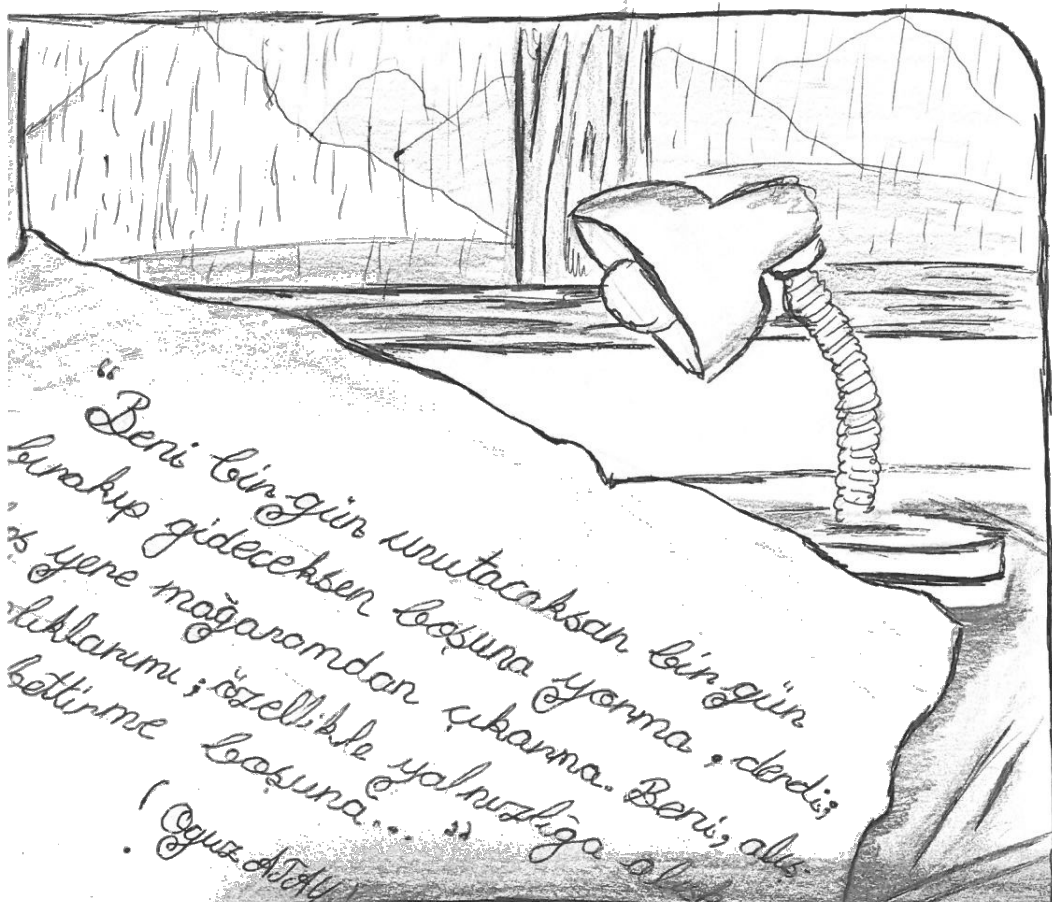 “Beni bir gün unutacaksan bir gün
bırakıp gideceksen boşuna yorma , derdi;
ş yere mağaramdan çıkarma. Beni, alış-
lıklarımı ; özellikle yalnızlığa
bettirme boşuna... ”
(Oğuz ATAY)